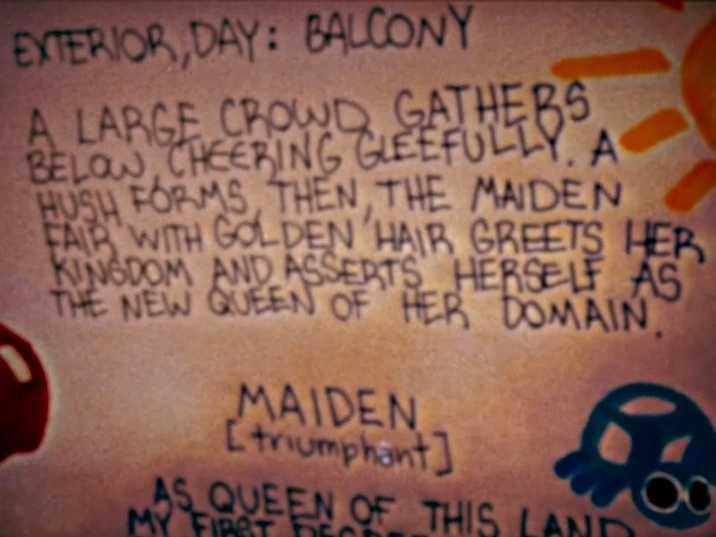 EXTERIOR, DAY: BALCONY
A LARGE CROWD GATHERS
BELOW, CHEERING GLEEFULLY. A
HUSH FORMS, THEN, THE MAIDEN
FAIR WITH GOLDEN HAIR GREETS HER
KINGDOM AND ASSERTS HERSELF AS
THE NEW QUEEN OF HER DOMAIN.
MAIDEN
[triumphant]
AS QUEEN OF THIS LAND
MY FIRST